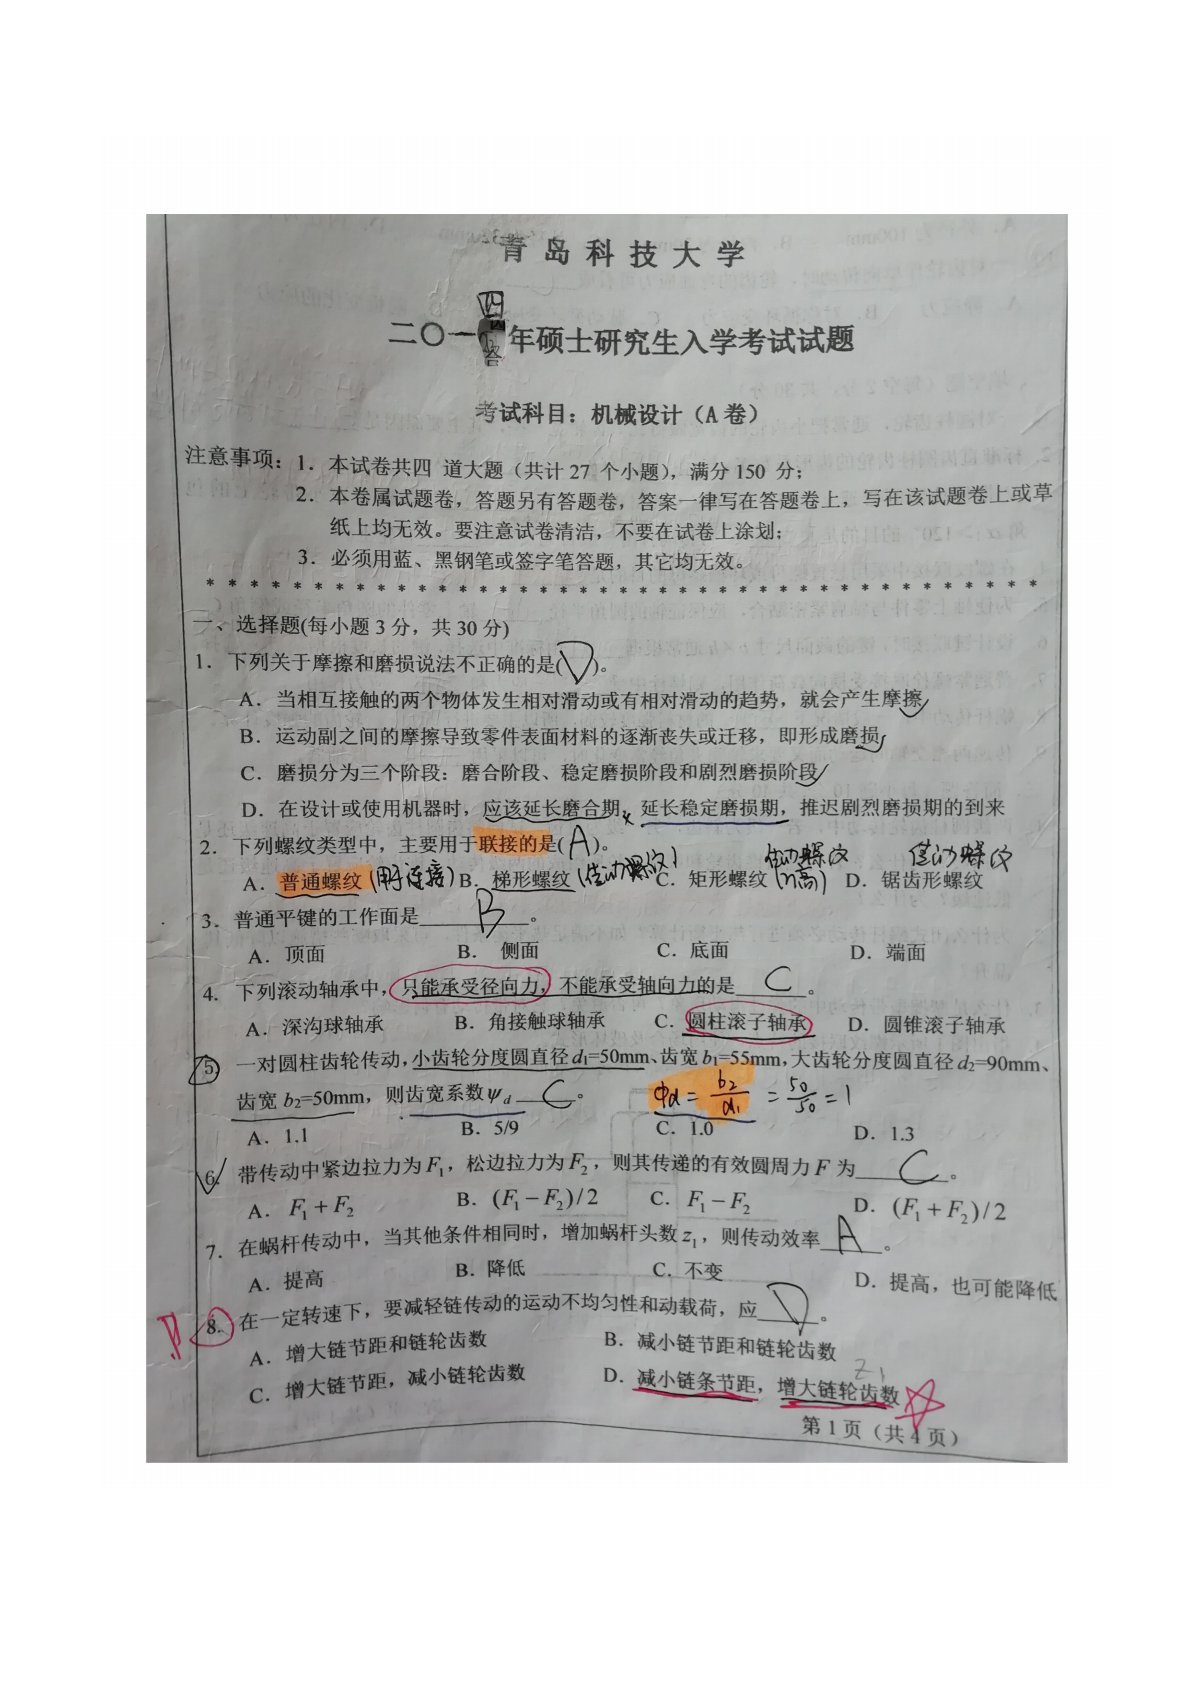 青 岛 科 技 大 学
二〇一四年硕士研究生入学考试试题
考试科目：机械设计（A 卷）
注意事项：1. 本试卷共四 道大题（共计 27 个小题），满分 150 分；
2. 本卷属试题卷，答题另有答题卷，答案一律写在答题卷上，写在该试题卷上或草
纸上均无效。要注意试卷清洁，不要在试卷上涂划；
3. 必须用蓝、黑钢笔或签字笔答题，其它均无效。
* * * * * * * * * * * * * * * * * * * * * * * * * * * * * * * * * * * * * *
一、选择题(每小题 3 分，共 30 分)
1. 下列关于摩擦和磨损说法不正确的是( D )。
A. 当相互接触的两个物体发生相对滑动或有相对滑动的趋势，就会产生摩擦
B. 运动副之间的摩擦导致零件表面材料的逐渐丧失或迁移，即形成磨损
C. 磨损分为三个阶段：磨合阶段、稳定磨损阶段和剧烈磨损阶段
D. 在设计或使用机器时，应该延长磨合期，延长稳定磨损期，推迟剧烈磨损期的到来
2. 下列螺纹类型中，主要用于联接的是( A )。
传动螺纹 传动螺纹
A. 普通螺纹 (用于连接) B. 梯形螺纹 (传动螺纹) C. 矩形螺纹 (η高) D. 锯齿形螺纹
3. 普通平键的工作面是 B 。
A. 顶面 B. 侧面 C. 底面 D. 端面
4. 下列滚动轴承中，只能承受径向力，不能承受轴向力的是 C 。
A. 深沟球轴承 B. 角接触球轴承 C. 圆柱滚子轴承 D. 圆锥滚子轴承
5. 一对圆柱齿轮传动，小齿轮分度圆直径 d1=50mm、齿宽 b1=55mm，大齿轮分度圆直径 d2=90mm、
齿宽 b2=50mm，则齿宽系数ψd C 。 Φd = b2/d1 = 50/50 = 1
A. 1.1 B. 5/9 C. 1.0 D. 1.3
6. 带传动中紧边拉力为 F1，松边拉力为 F2，则其传递的有效圆周力 F 为 C 。
A. F1 + F2 B. (F1 − F2)/2 C. F1 − F2 D. (F1 + F2)/2
7. 在蜗杆传动中，当其他条件相同时，增加蜗杆头数 z1，则传动效率 A 。
A. 提高 B. 降低 C. 不变 D. 提高，也可能降低
8. 在一定转速下，要减轻链传动的运动不均匀性和动载荷，应 D 。
A. 增大链节距和链轮齿数 B. 减小链节距和链轮齿数
Z1
C. 增大链节距，减小链轮齿数 D. 减小链条节距，增大链轮齿数
第 1 页（共 4 页）